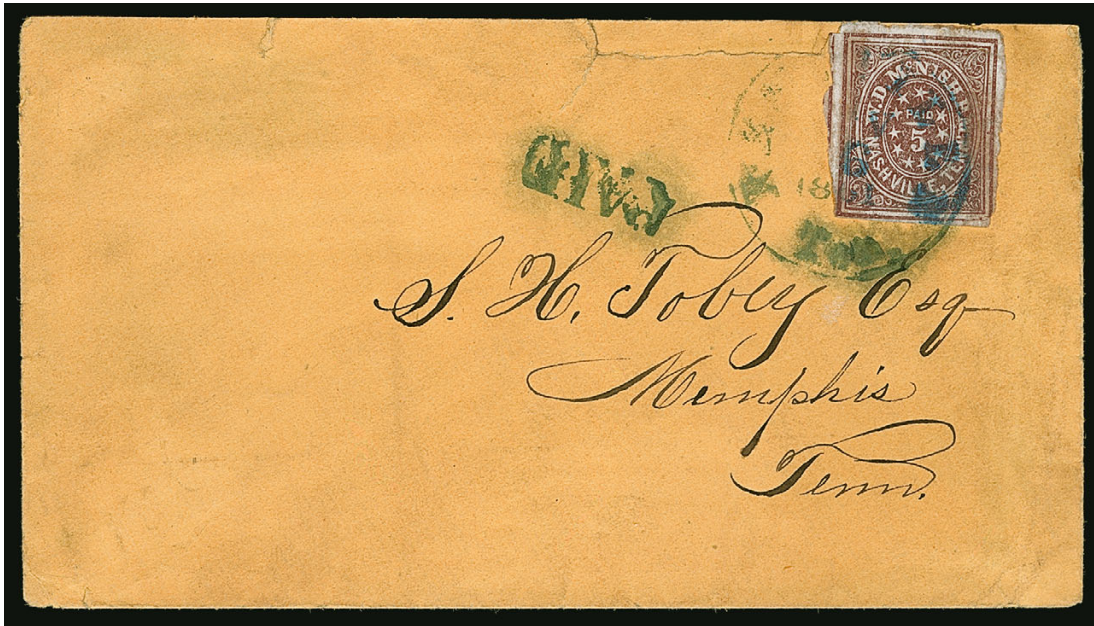 W.D. McNISH, P.M.
PAID
5
NASHVILLE, TEN.
PAID
18
S. H. Tobey Esq
Memphis
Tenn.